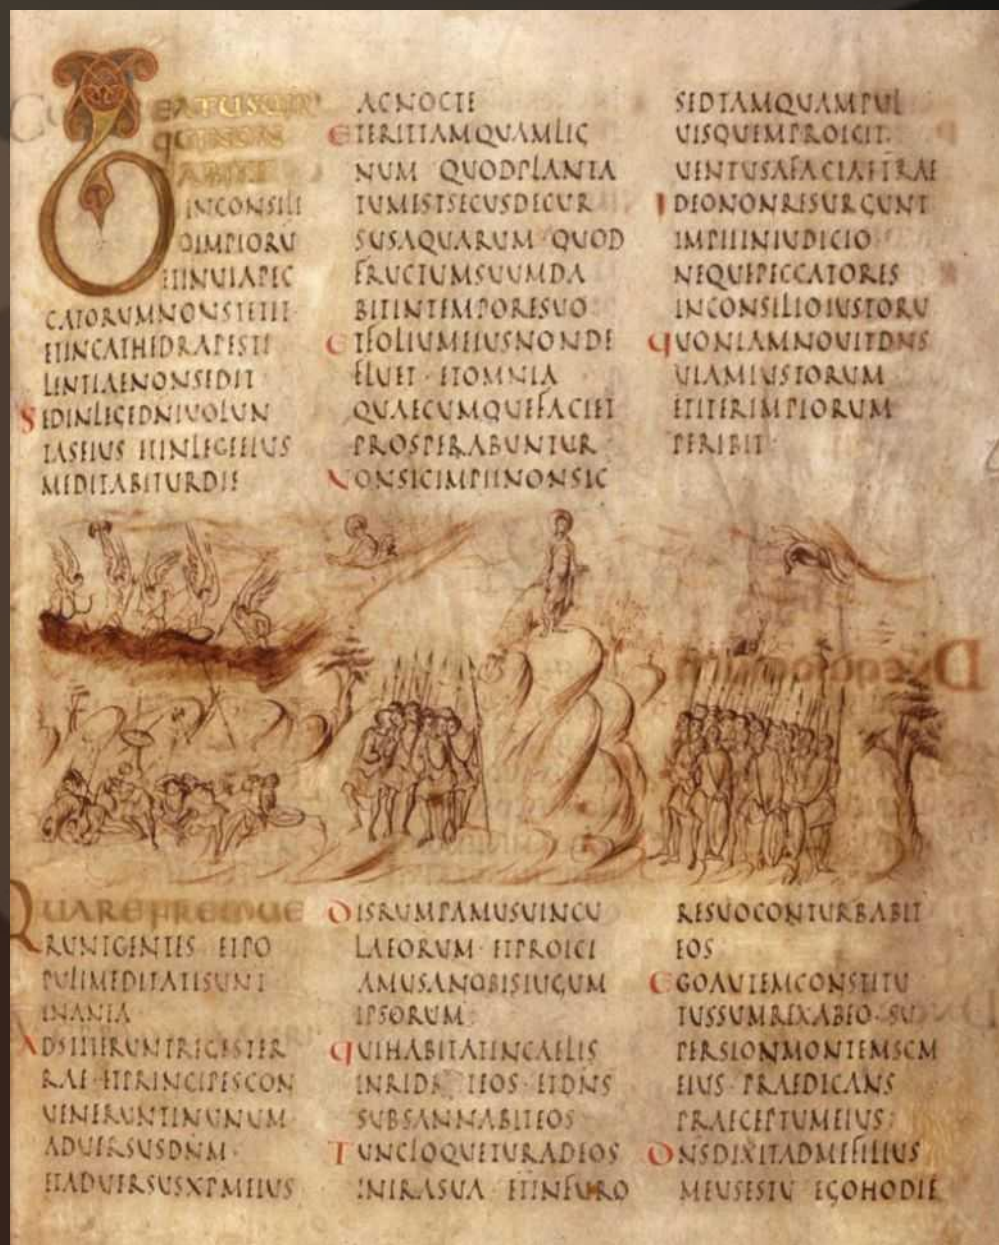 BEATUSUIR
QUINON
ABIIT
INCONSILI
OIMPIORU
ETINUIAPEC
CATORUMNONSTETIT
ETINCATHEDRAPESTI
LENTIAENONSEDIT
SEDINLEGEDNIUOLUN
TASEIUS ETINLEGEEIUS
MEDITABITURDIE
ACNOCTE
ETERITTAMQUAMLIG
NUM QUODPLANTA
TUMESTSECUSDECUR
SUSAQUARUM QUOD
FRUCTUMSUUMDA
BITINTEMPORESUO
ETFOLIUMEIUSNONDE
FLUET · ETOMNIA
QUAECUMQUEFACIET
PROSPERABUNTUR
NONSICIMPIINONSIC
SEDTAMQUAMPUL
UISQUEMPROICIT
UENTUSAFACIAETERRAE
IDEONONRESURGUNT
IMPIIINIUDICIO
NEQUEPECCATORES
INCONSILIOIUSTORU
QUONIAMNOUITDNS
UIAMIUSTORUM
ETITERIMPIORUM
PERIBIT
QUAREFREMUE
RUNTGENTES ETPO
PULIMEDITATISUNT
INANIA
ADSTITERUNTREGESTER
RAE·ETPRINCIPESCON
UENERUNTINUNUM
ADUERSUSDNM·
ETADUERSUSXPMEIUS
DISRUMPAMUSUINCU
LAEORUM · ETPROICI
AMUSANOBISIUGUM
IPSORUM
QUIHABITATINCAELIS
INRIDE TEOS · ETDNS
SUBSANNABITEOS
TUNCLOQUETURADEOS
INIRASUA ETINFURO
RESUOCONTURBABIT
EOS
EGOAUTEMCONSTITU
TUSSUMREXABEO·SU
PERSIONMONTEMSCM
EIUS·PRAEDICANS
PRAECEPTUMEIUS
DNSDIXITADMEFILIUS
MEUSESTU EGOHODIE